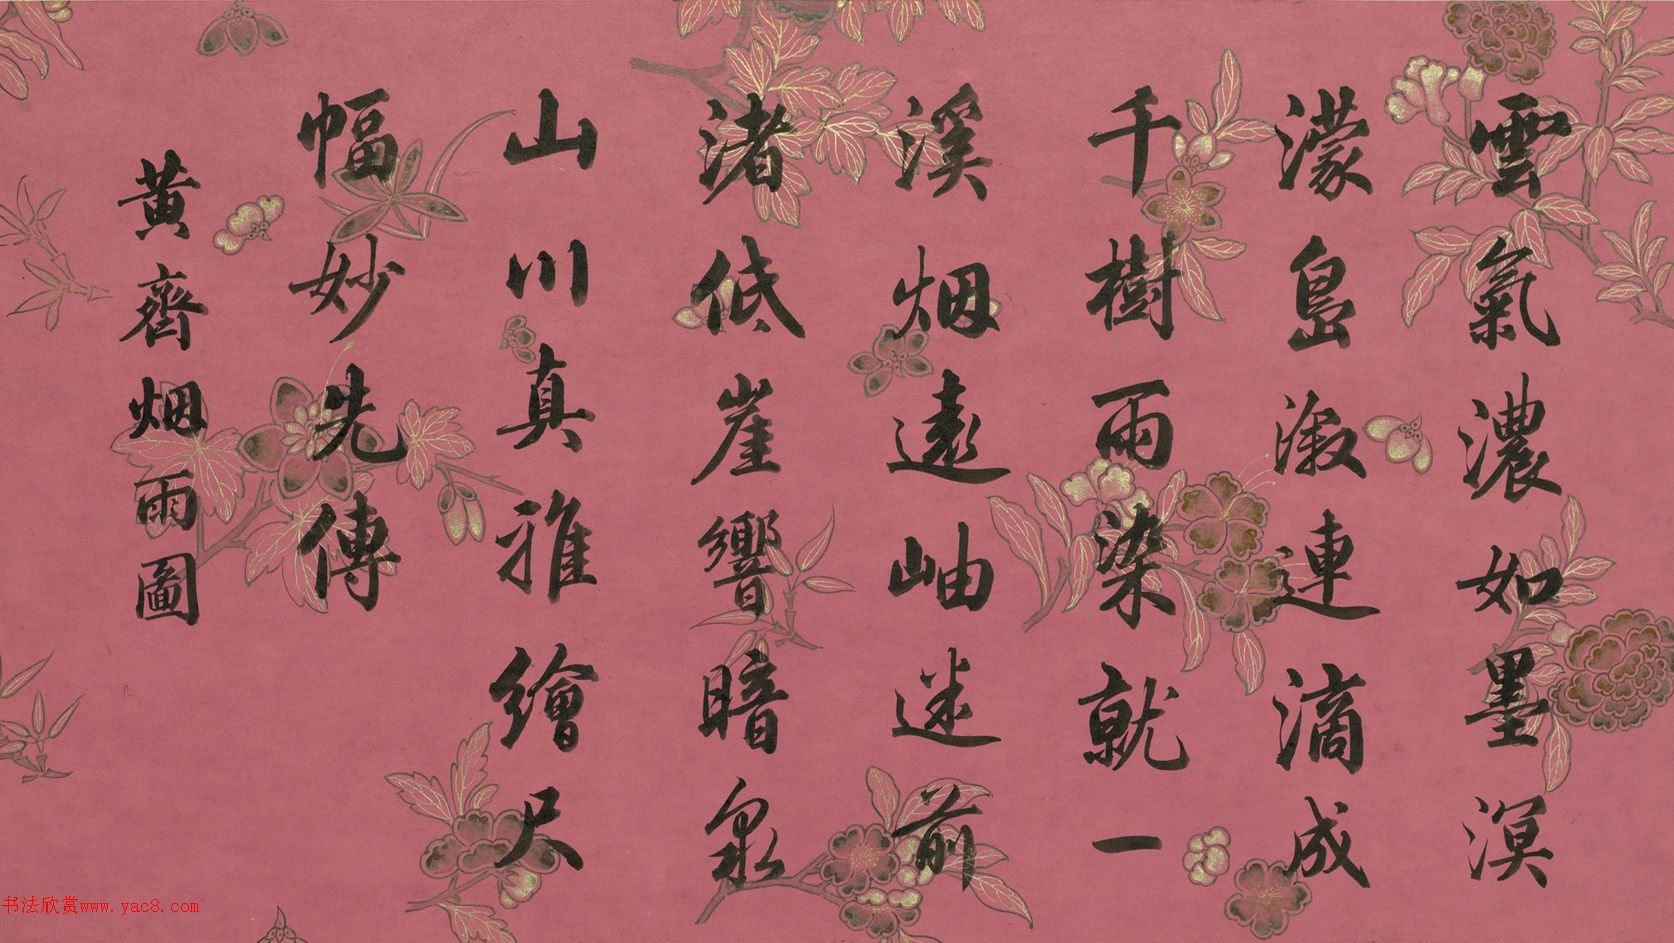 雲氣濃如墨溟
濛島溆連滴成
千樹雨染就一
溪烟遠岫迷前
渚低崖響暗泉
山川真雅繪尺
幅妙先傳
黄齊烟雨圖
书法欣赏www.yac8.com